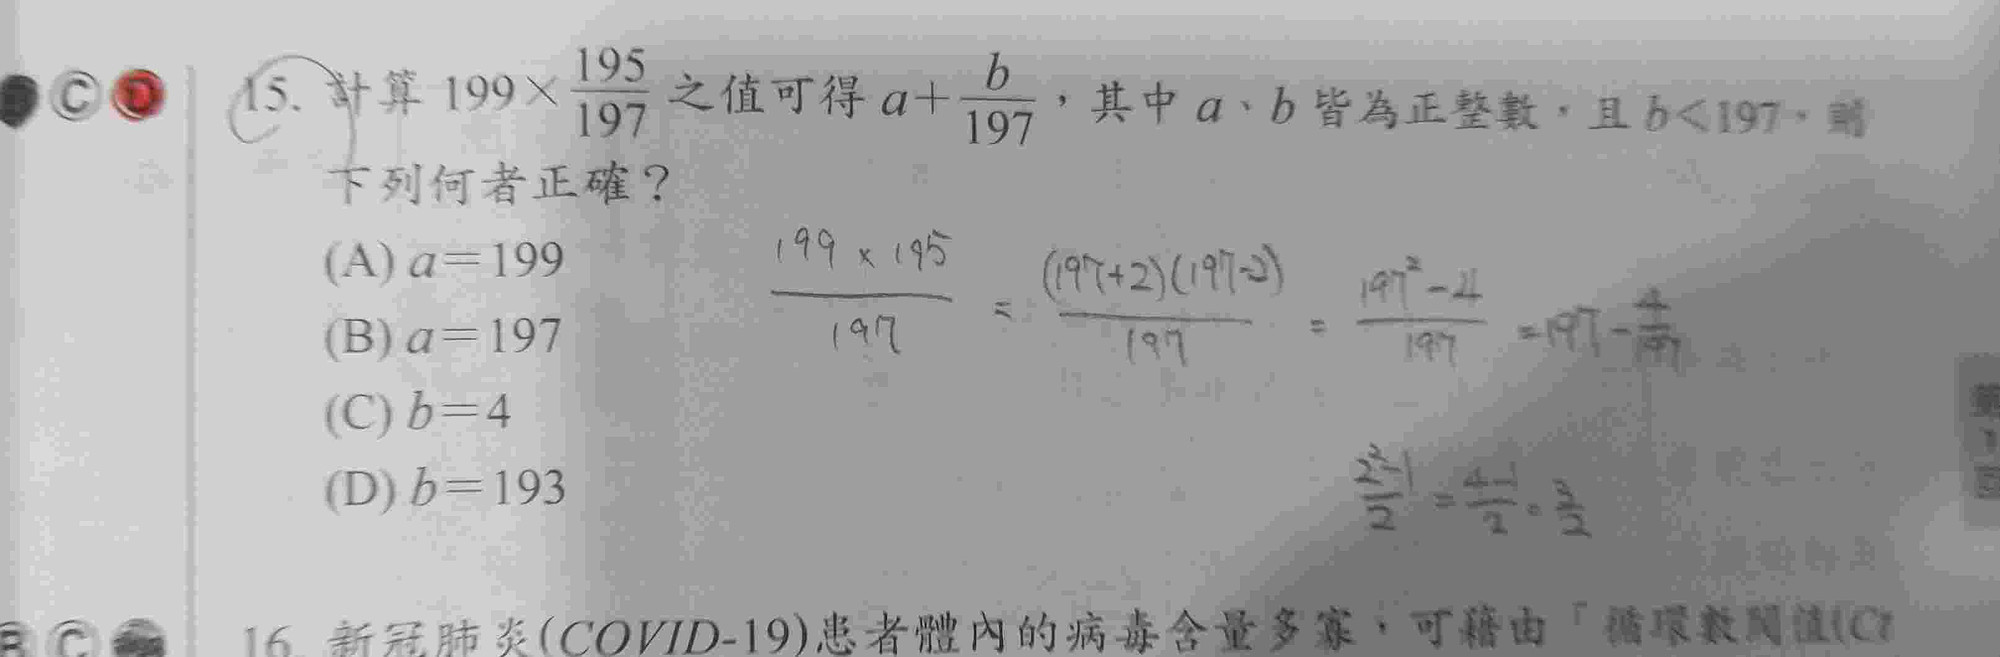 Ⓒ Ⓓ 15. 計算 199×195/197 之值可得 a+b/197，其中 a、b 皆為正整數，且 b<197，則
下列何者正確？
(A) a=199
(B) a=197
(C) b=4
(D) b=193
199 × 195 / 197 = (197+2)(197-2) / 197 = 197²-4 / 197 = 197 - 4/197
2²-1 / 2 = 4-1 / 2 = 3/2
Ⓒ 16. 新冠肺炎(COVID-19)患者體內的病毒含量多寡，可藉由「循環數閾值(Ct